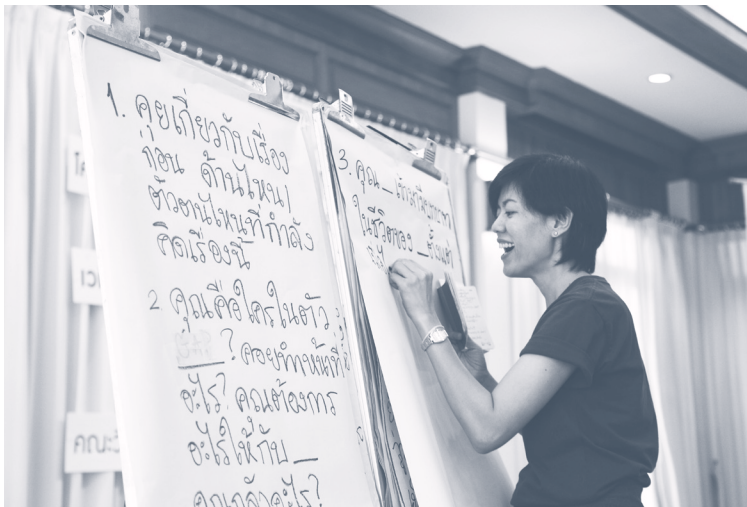 1. คุยเกี่ยวกับเรื่อง
ก่อน ด้านไหน/
ตัวตนไหนที่กำลัง
คิดเรื่องนี้
2 คุณคือใครในตัว
? คอยทำหน้าที่
อะไร? คุณต้องการ
อะไรให้กับ _
คุณกลัวอะไร?
3. คุณ _
ในชีวิตของ _ ตั้งแต่